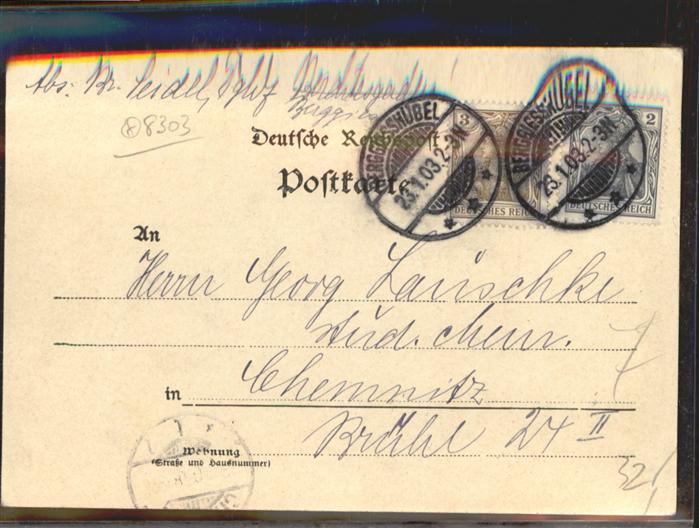 Abs: Br. Seidel,
8303
Deutsche Reichspost
Postkarte
BERGGIESSHÜBEL
23.1.03.2-3N
3
DEUTSCHES REICH
BERGGIESSHÜBEL
23.1.03.2-3N
2
DEUTSCHES REICH
An
Herrn Georg Lauschke
stud. chem.
in Chemnitz
Brühl 24 II
Wohnung
(Straße und Hausnummer)